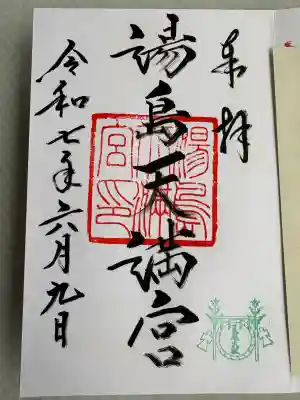 奉拝
湯島天満宮
湯島天満宮印
令和七年六月九日